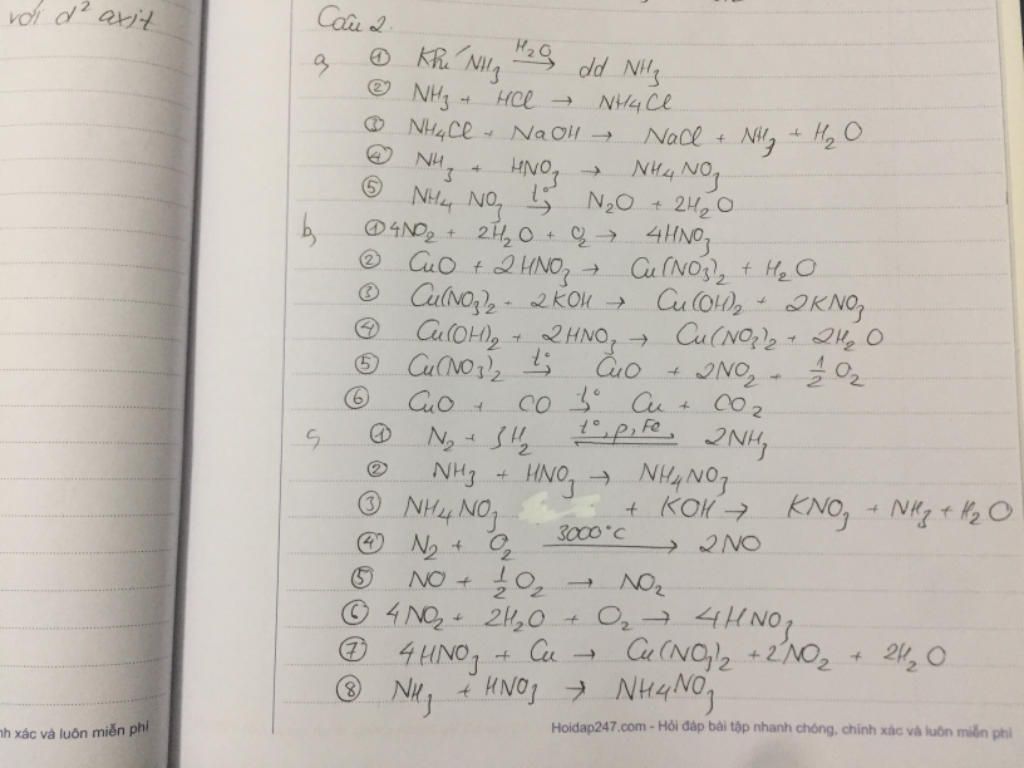 với d² axit
Câu 2.
a, ① Khí NH₃ —H₂O→ dd NH₃
② NH₃ + HCl → NH₄Cl
③ NH₄Cl + NaOH → NaCl + NH₃ + H₂O
④ NH₃ + HNO₃ → NH₄NO₃
⑤ NH₄NO₃ —t°→ N₂O + 2H₂O
b, ① 4NO₂ + 2H₂O + O₂ → 4HNO₃
② CuO + 2HNO₃ → Cu(NO₃)₂ + H₂O
③ Cu(NO₃)₂ + 2KOH → Cu(OH)₂ + 2KNO₃
④ Cu(OH)₂ + 2HNO₃ → Cu(NO₃)₂ + 2H₂O
⑤ Cu(NO₃)₂ —t°→ CuO + 2NO₂ + 1/2 O₂
⑥ CuO + CO —t°→ Cu + CO₂
c, ① N₂ + 3H₂ ⇌ (t°, p, Fe) 2NH₃
② NH₃ + HNO₃ → NH₄NO₃
③ NH₄NO₃ + KOH → KNO₃ + NH₃ + H₂O
④ N₂ + O₂ —3000°C→ 2NO
⑤ NO + 1/2 O₂ → NO₂
⑥ 4NO₂ + 2H₂O + O₂ → 4HNO₃
⑦ 4HNO₃ + Cu → Cu(NO₃)₂ + 2NO₂ + 2H₂O
⑧ NH₃ + HNO₃ → NH₄NO₃
xác và luôn miễn phí
Hoidap247.com - Hỏi đáp bài tập nhanh chóng, chính xác và luôn miễn phí